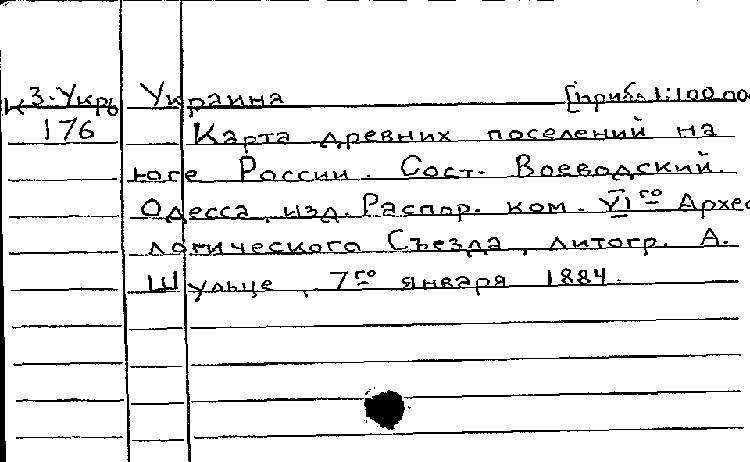 К3-Укр Украина [прибл 1:100 00
176 Карта древних поселений на
юге России. Сост. Воеводский.
Одесса, изд. Распор. ком. VIго Архео
логического Съезда, литогр. А.
Шульце, 7го января 1884.